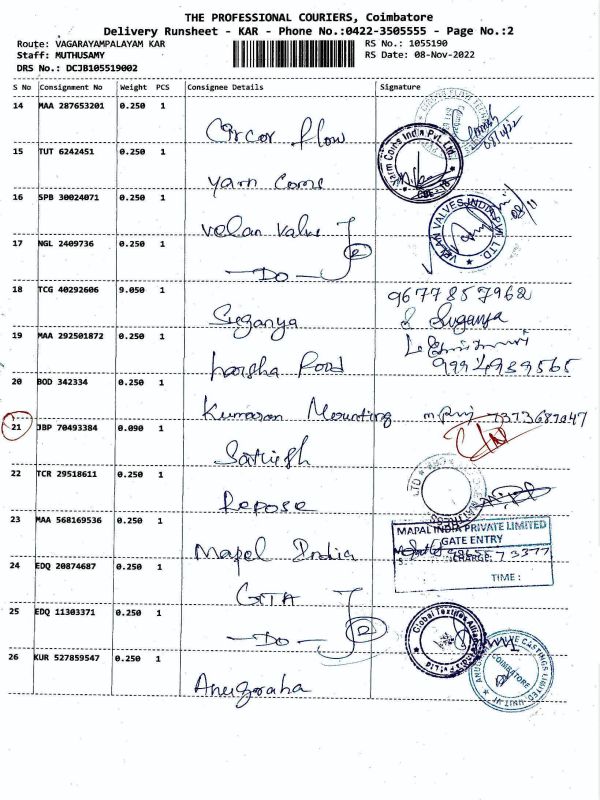 THE PROFESSIONAL COURIERS, Coimbatore
Delivery Runsheet - KAR - Phone No.:0422-3505555 - Page No.:2
Route: VAGARAYAMPALAYAM KAR
RS No.: 1055190
Staff: MUTHUSAMY
RS Date: 08-Nov-2022
DRS No.: DCJB105519002
S No Consignment No Weight PCS Consignee Details Signature
14 MAA 287653201 0.250 1
Circor Flow
08/11/22
15 TUT 6242451 0.250 1
Yarn Cone
Yarn Cones India Pvt. Ltd.
16 SPB 30024071 0.250 1
Velan Valve
VELAN VALVES INDIA PVT. LTD.
08/11
17 NGL 2409736 0.250 1
-Do-
2
18 TCG 40292606 9.050 1
Suganya
9677857962
S Suganya
19 MAA 292501872 0.250 1
harsha Food
9994939565
20 BOD 342334 0.250 1
Kumaran Mounting
7373687047
21 JBP 70493384 0.090 1
Satiesh
22 TCR 29518611 0.250 1
Repose
23 MAA 568169536 0.250 1
Mapel India
MAPAL INDIA PRIVATE LIMITED
GATE ENTRY
TIME :
24 EDQ 20874687 0.250 1
GTA
25 EDQ 11303371 0.250 1
-Do-
2
Global Textiles
26 KUR 527859547 0.250 1
Anugraha
COIMBATORE